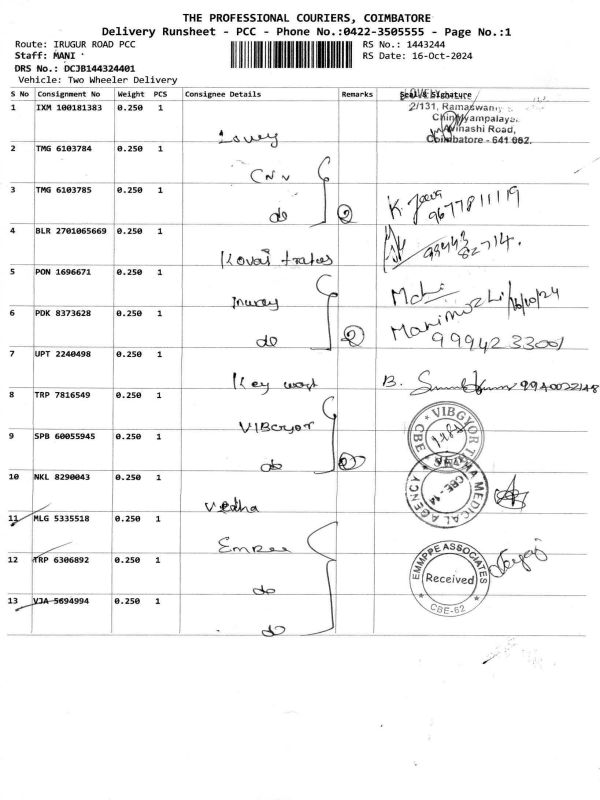 THE PROFESSIONAL COURIERS, COIMBATORE
Delivery Runsheet - PCC - Phone No.:0422-3505555 - Page No.:1
Route: IRUGUR ROAD PCC
RS No.: 1443244
Staff: MANI
RS Date: 16-Oct-2024
DRS No.: DCJB144324401
Vehicle: Two Wheeler Delivery
S No Consignment No Weight PCS Consignee Details Remarks Seal & Signature
1 IXM 100181383 0.250 1
2/131, Ramaswamy
Chinniyampalayam
Avinashi Road,
Coimbatore - 641 062.
2 TMG 6103784 0.250 1 CNV
3 TMG 6103785 0.250 1 do 2 K. Jeeva
9677811119
4 BLR 2701065669 0.250 1 Kovai
99443
82714.
5 PON 1696671 0.250 1
16/10/24
6 PDK 8373628 0.250 1 do 2
99942 33001
7 UPT 2240498 0.250 1 Key B.
8 TRP 7816549 0.250 1 VIBGYOR
VIBGYOR
CBE
9 SPB 60055945 0.250 1 do 2
10 NKL 8290043 0.250 1 Vedha
MEDICAL AGENCY
CBE-14
11 MLG 5335518 0.250 1 Empee
12 TRP 6306892 0.250 1 do
EMMPPE ASSOCIATES
Received
CBE-62
13 VJA 5694994 0.250 1 do